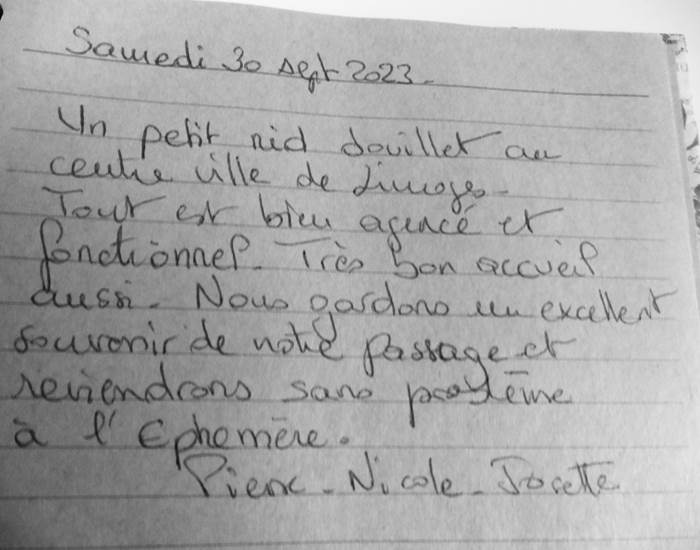 Samedi 30 sept 2023.
Un petit nid douillet au
centre ville de Limoges.
Tout est bien agencé et
fonctionnel. Très bon accueil
aussi. Nous gardons un excellent
souvenir de notre passage et
reviendrons sans problème
à l'Ephemère.
Pierre - Nicole - Josette